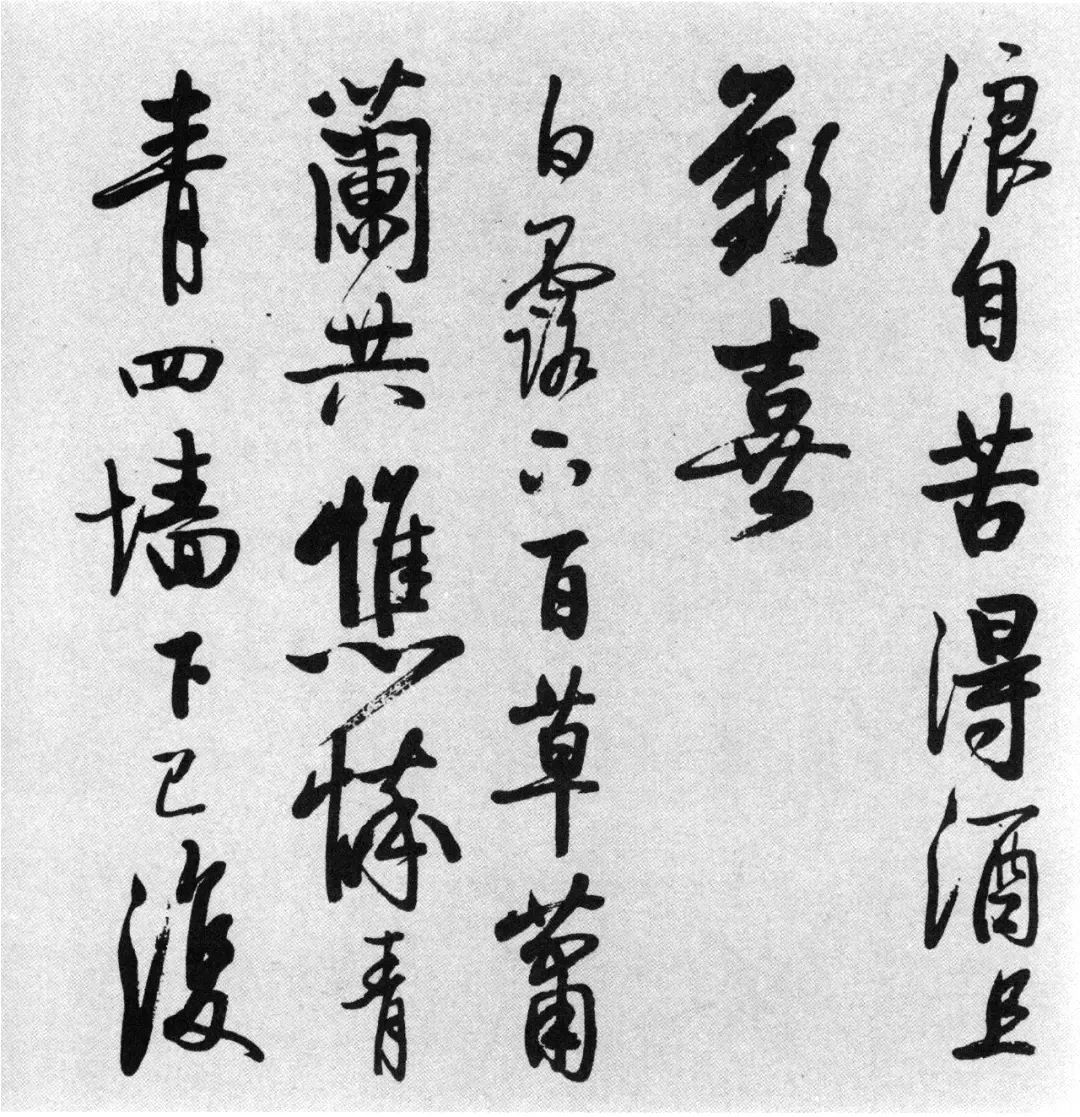 浪自苦得酒且
歡喜
白露下百草蕭
蘭共憔悴青
青四墙下已復